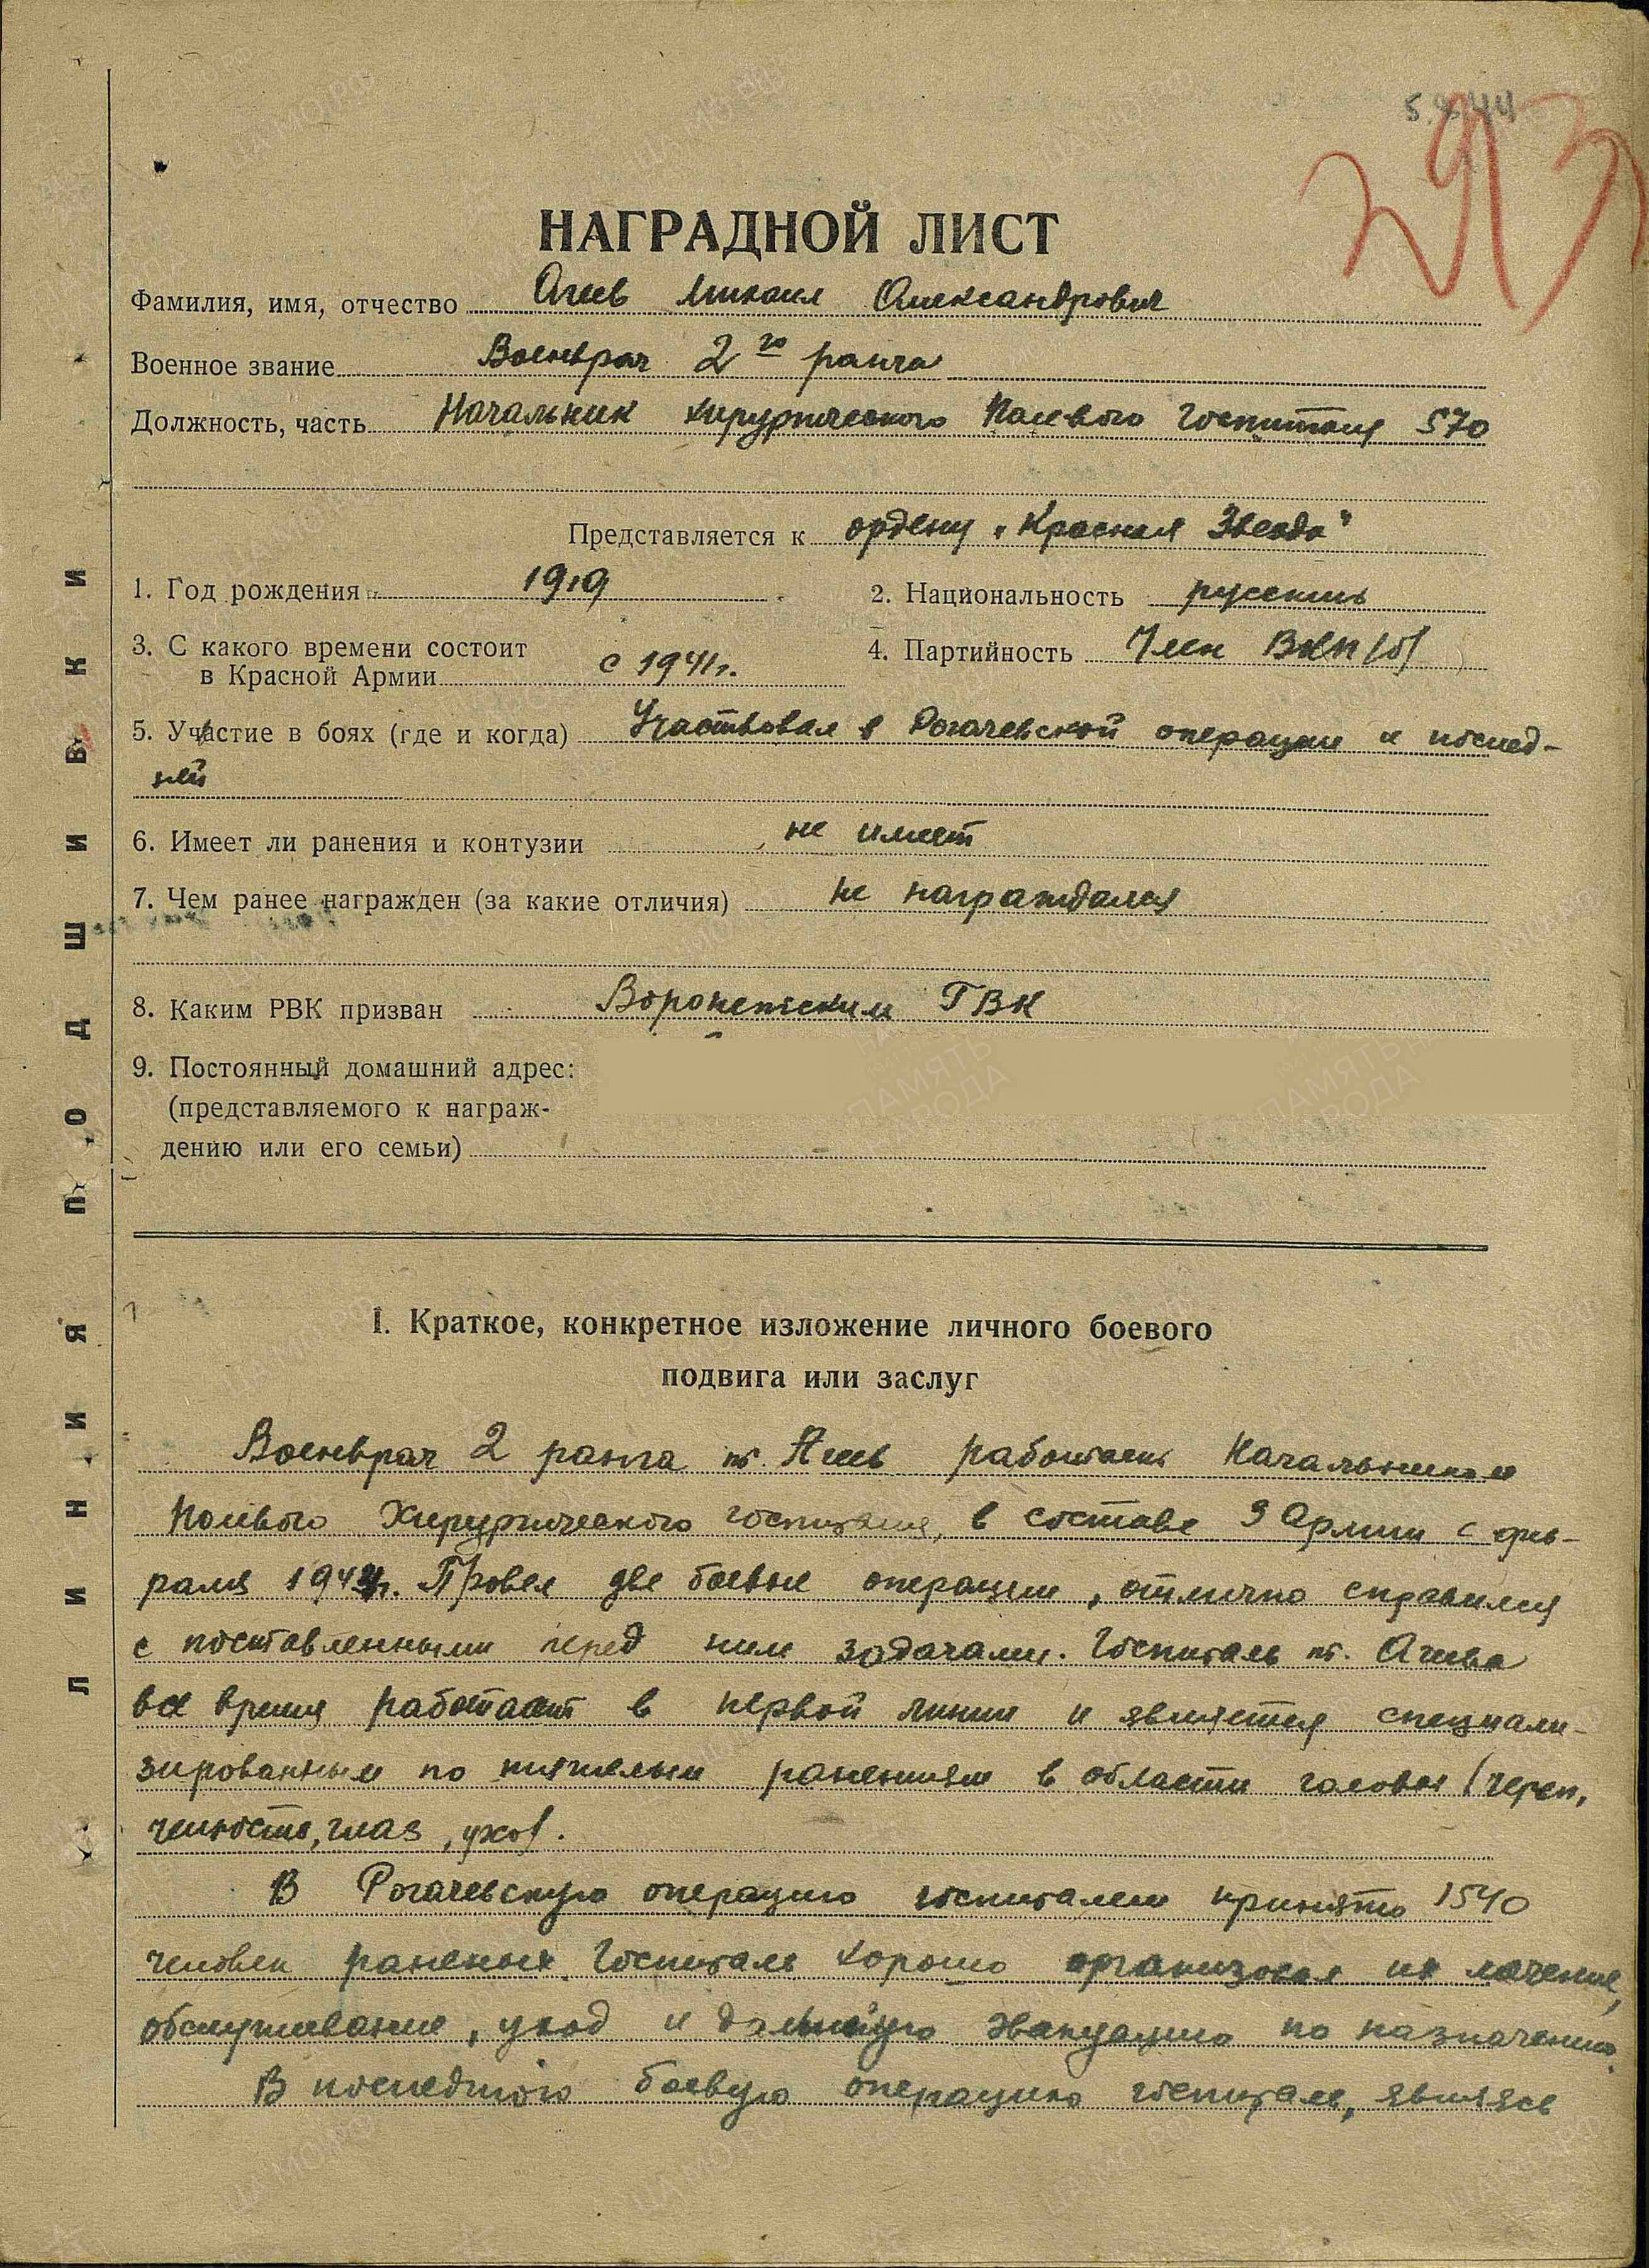 5.8.44
293
НАГРАДНОЙ ЛИСТ
Фамилия, имя, отчество Агеев Михаил Александрович
Военное звание Военврач 2го ранга
Должность, часть Начальник хирургического Полевого Госпиталя 570
Представляется к ордену „Красная Звезда"
1. Год рождения 1919
2. Национальность русский
3. С какого времени состоит
в Красной Армии с 1941г.
4. Партийность Член ВКП(б)
5. Участие в боях (где и когда) Участвовал в Рогачевской операции и послед-
ней
6. Имеет ли ранения и контузии не имеет
7. Чем ранее награжден (за какие отличия) не награждался
8. Каким РВК призван Воронежским ГВК
9. Постоянный домашний адрес:
(представляемого к награж-
дению или его семьи)
ЛИНИЯ ПОДШИВКИ
I. Краткое, конкретное изложение личного боевого
подвига или заслуг
Военврач 2 ранга т. Агеев работает Начальником
Полевого Хирургического госпиталя, в составе 3 Армии с фев-
раля 1944г. Провел две боевые операции, отлично справился
с поставленными перед ним задачами. Госпиталь т. Агеева
все время работает в первой линии и является специали-
зированным по тяжелым ранениям в области головы (череп,
челюсть, глаз, ухо).
В Рогачевскую операцию госпиталем принято 1540
человек раненых. Госпиталь хорошо организовал их лечение,
обслуживание, уход и дальнейшую эвакуацию по назначению.
В последнюю боевую операцию госпиталь, являясь